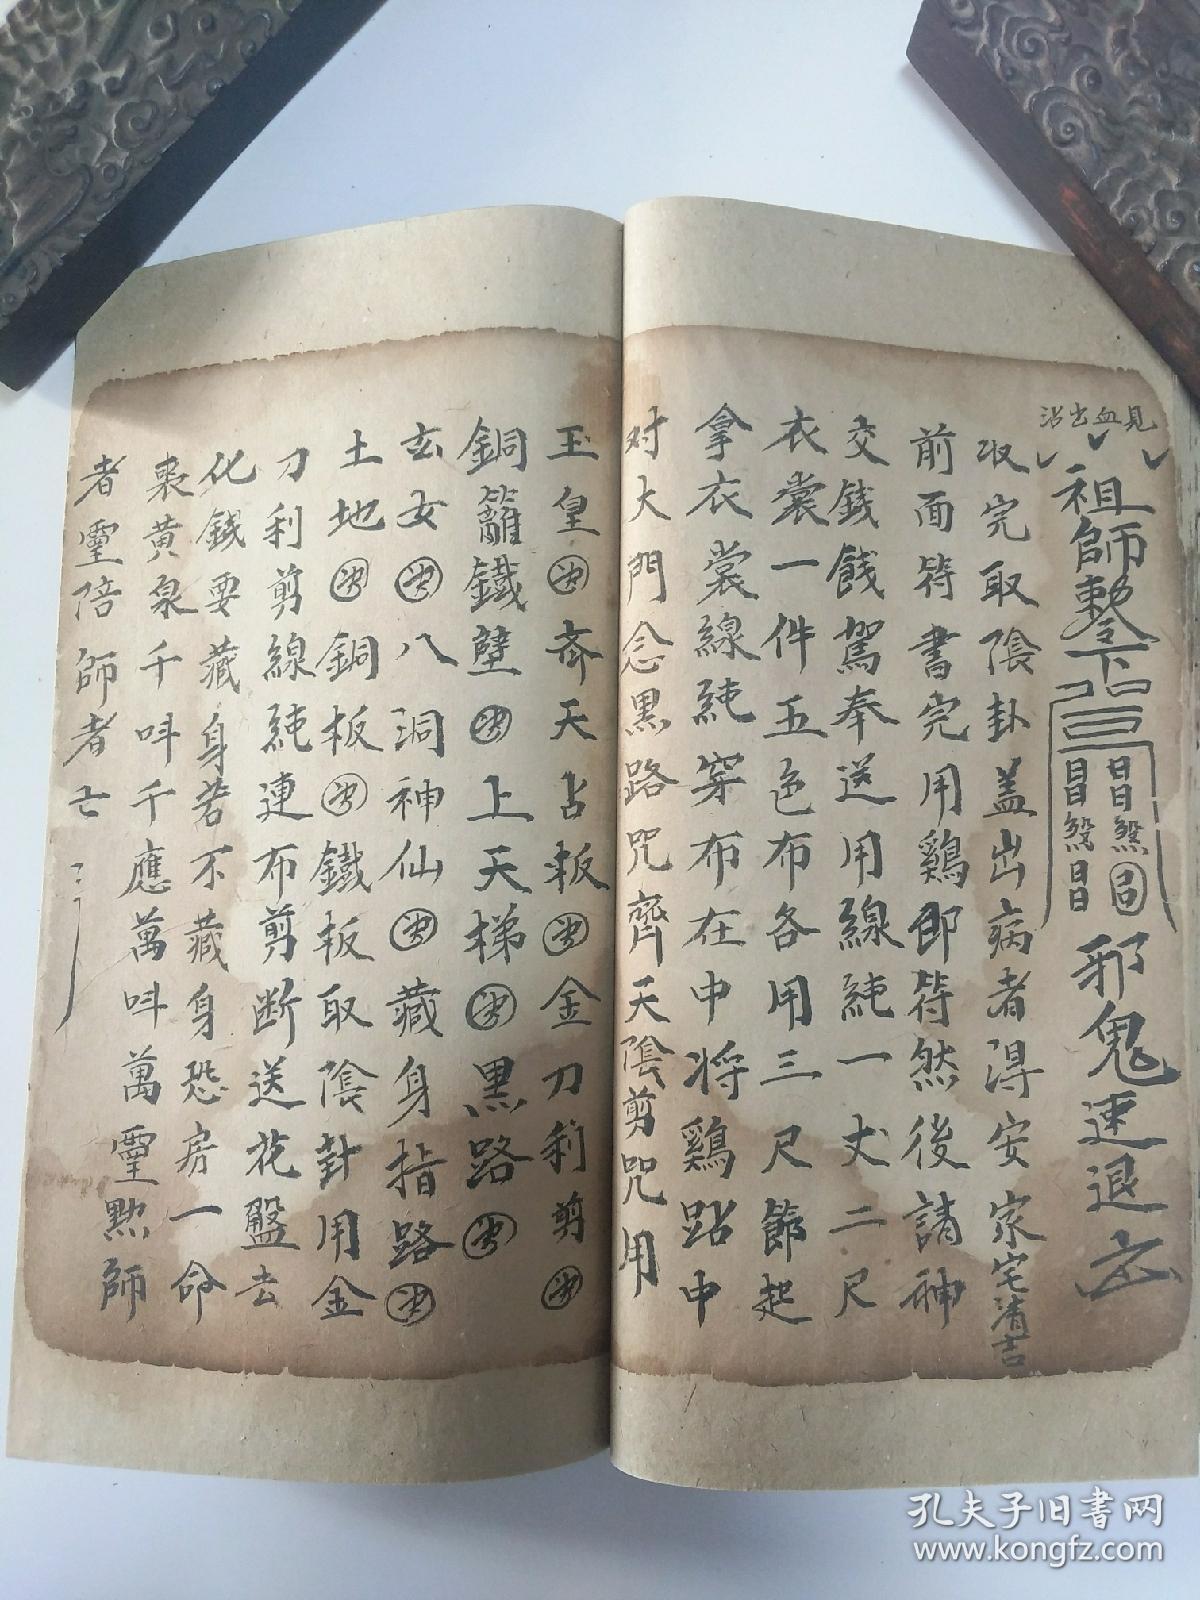 見血出沿
祖師敕令下
邪鬼速退
取完取陰卦盖出病者淂安家宅清吉
前面符書完用鷄卽符然後請神
交錢餞駕奉送用線純一丈二尺
衣裳一件五色布各用三尺節起
拿衣裳線純穿布在中将鷄跕中
对大門念黑路咒齊天陰剪咒用
玉皇㊋斎天占板㊋金刀利剪㊋
銅籬鐵壁㊋上天梯㊋黑路㊋
玄女㊋八洞神仙㊋藏身指路㊋
土地㊋銅板㊋鐵板取陰卦用金
刀利剪線純連布剪断送花盤去
化錢要藏身若不藏身恐房一命
喪黄泉千呌千應萬呌萬靈㸃師
者靈陪師者亡
孔夫子旧书网
www.kongfz.com